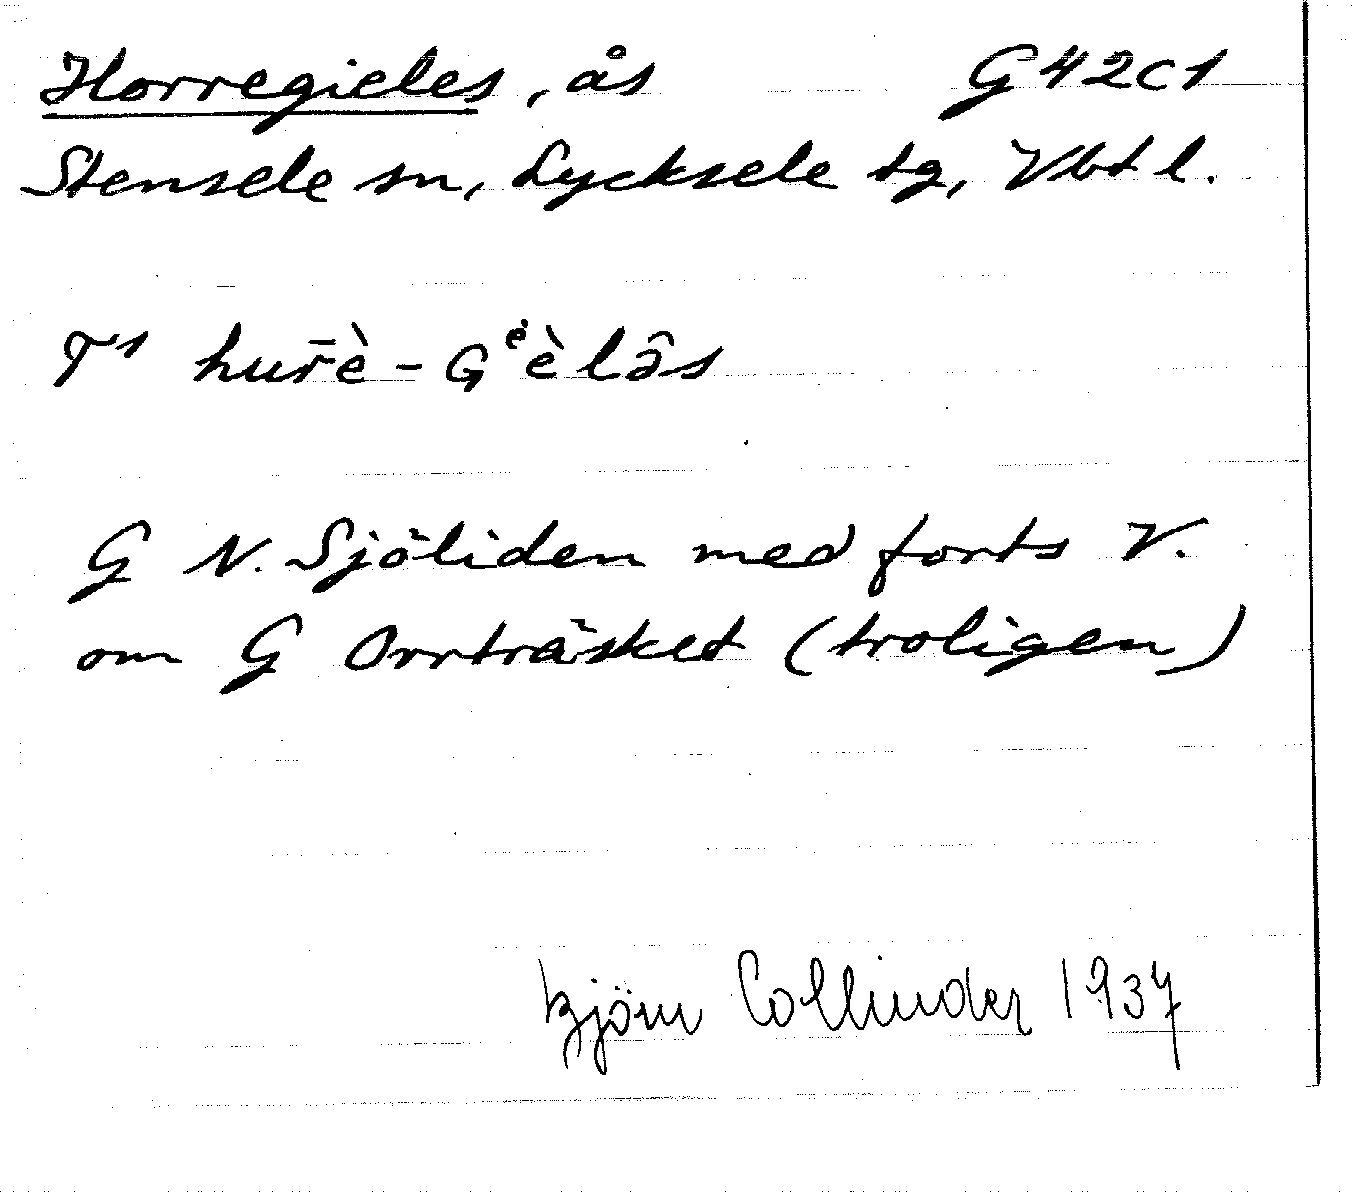 Horregieles, ås G42C1
Stensele sn, Lycksele tg, Vbtl.
T¹ hur̄è-Gᵉ̇èlâs
G N. Sjöliden med forts V.
om G Orrträsket (troligen)
Björn Collinder 1937